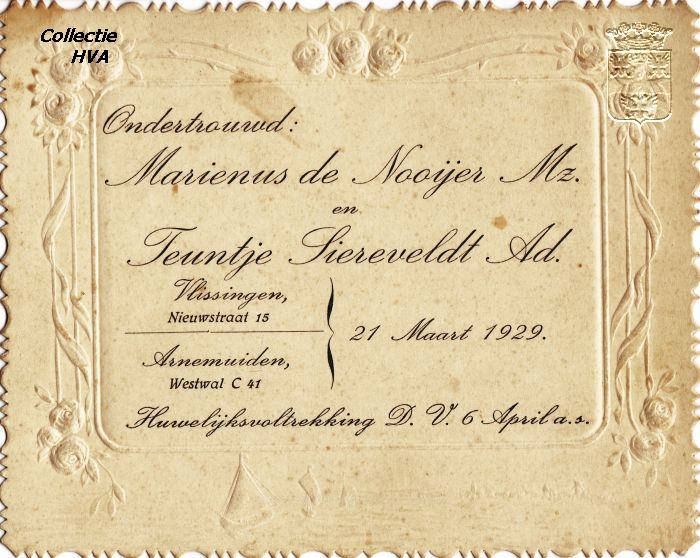 Collectie
HVA
Ondertrouwd:
Marienus de Nooijer Mz.
en
Teuntje Siereveldt Ad.
Vlissingen,
Nieuwstraat 15
21 Maart 1929.
Arnemuiden,
Westwal C 41
Huwelijksvoltrekking D. V. 6 April a.s.